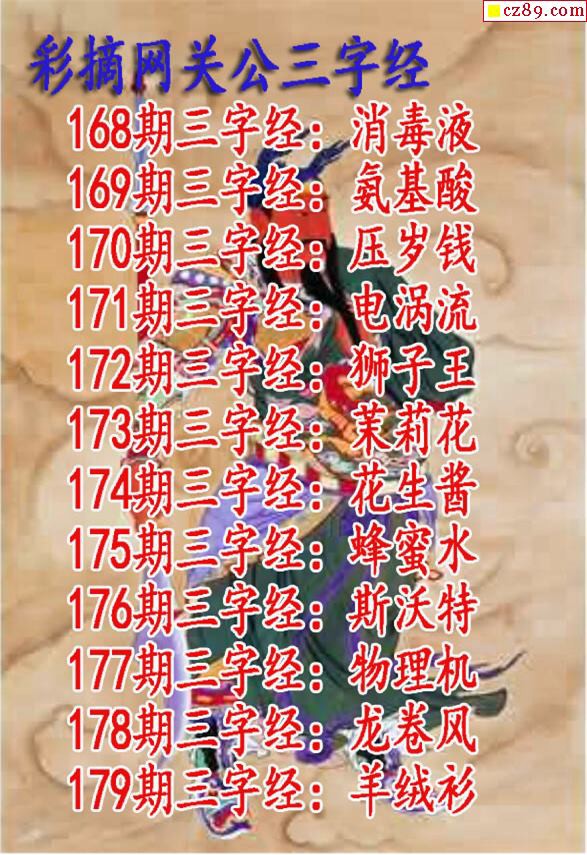 cz89.com
彩摘网关公三字经
168期三字经：消毒液
169期三字经：氨基酸
170期三字经：压岁钱
171期三字经：电涡流
172期三字经：狮子王
173期三字经：茉莉花
174期三字经：花生酱
175期三字经：蜂蜜水
176期三字经：斯沃特
177期三字经：物理机
178期三字经：龙卷风
179期三字经：羊绒衫